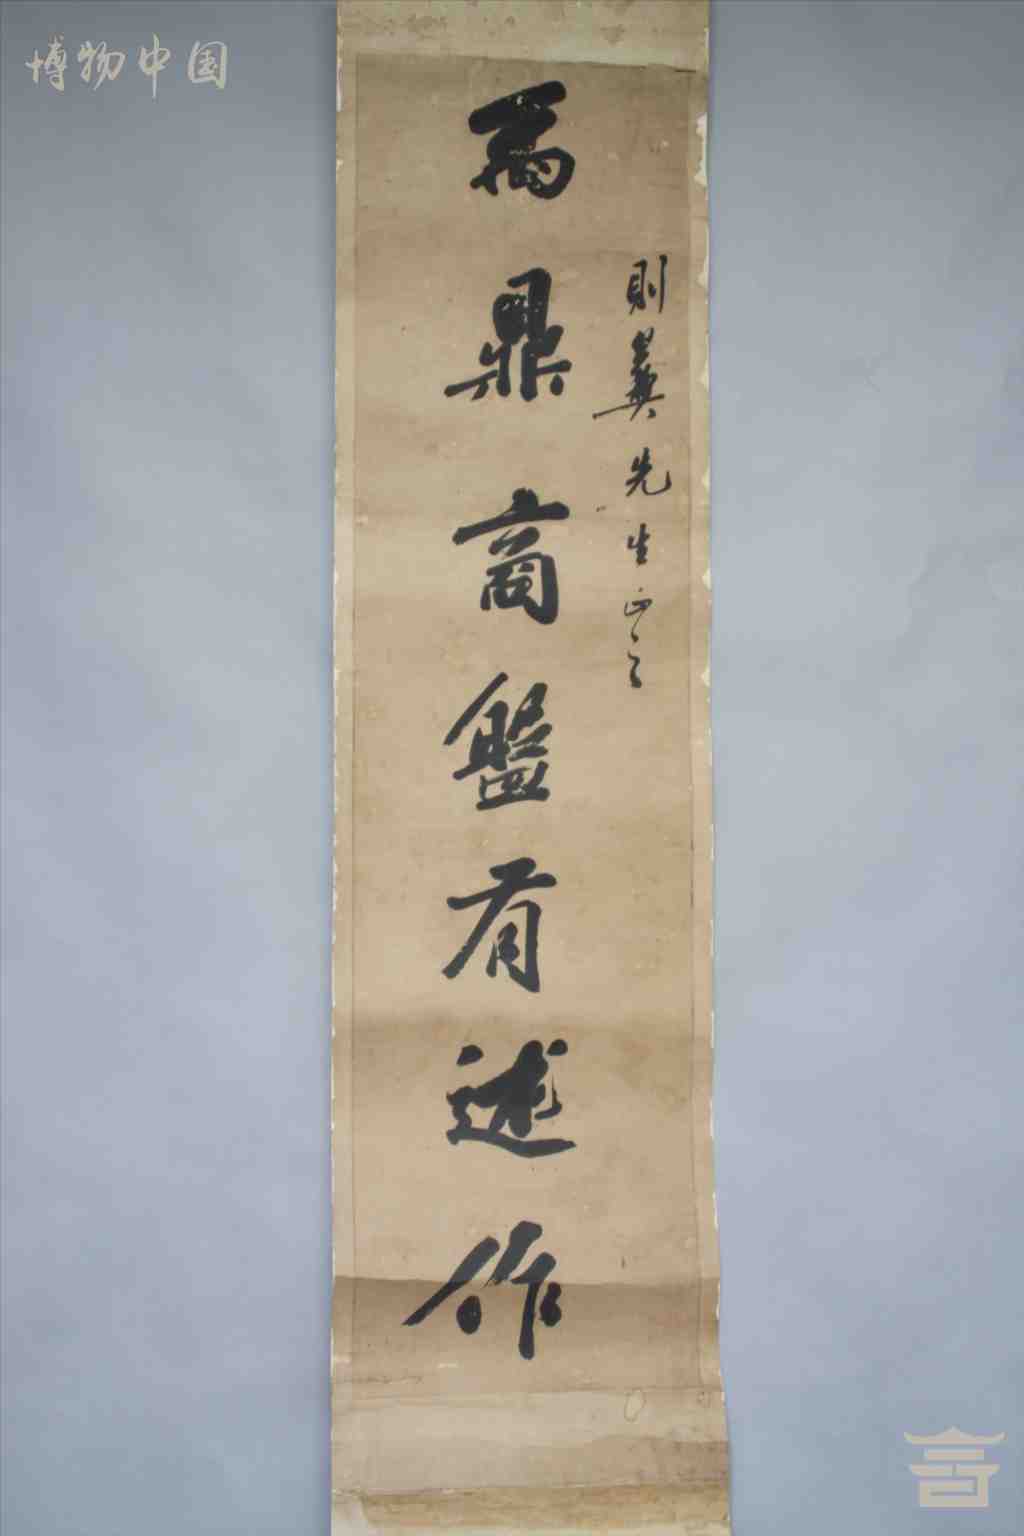 博物中国
則羹先生正之
禹鼎商盤有述作